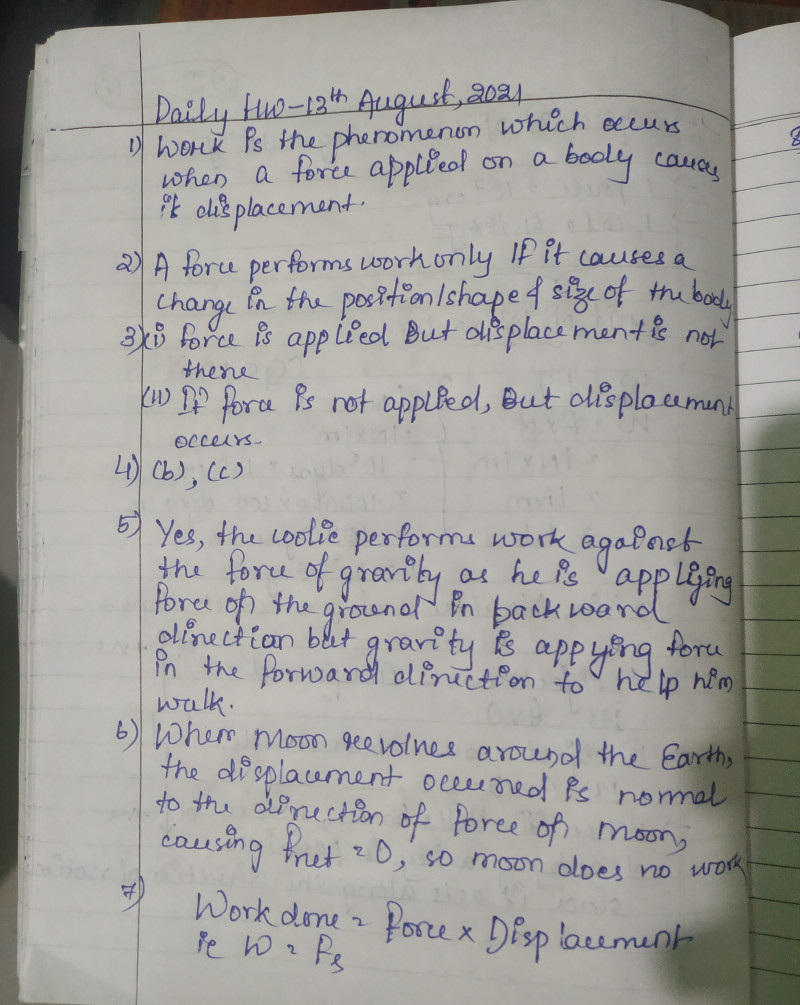 Daily HW-13th August, 2021
1) Work is the phenomenon which occurs
when a force applied on a body causes
it displacement.
2) A force performs work only If it causes a
change in the position/shape & size of the body
3)(i) force is applied But displacement is not
there
(II) If force is not applied, But displacement
occurs.
4) (b), (c)
5) Yes, the coolie performs work against
the force of gravity as he is appliying
force on the ground in backward
direction but gravity is appying force
in the forward direction to help him
walk.
6) When moon revolves around the Earth,
the displacment occurred is normal
to the direction of force on moon,
causing Fnet = 0, so moon does no work
7)
Work done = Force x Displacement
ie W = Fs